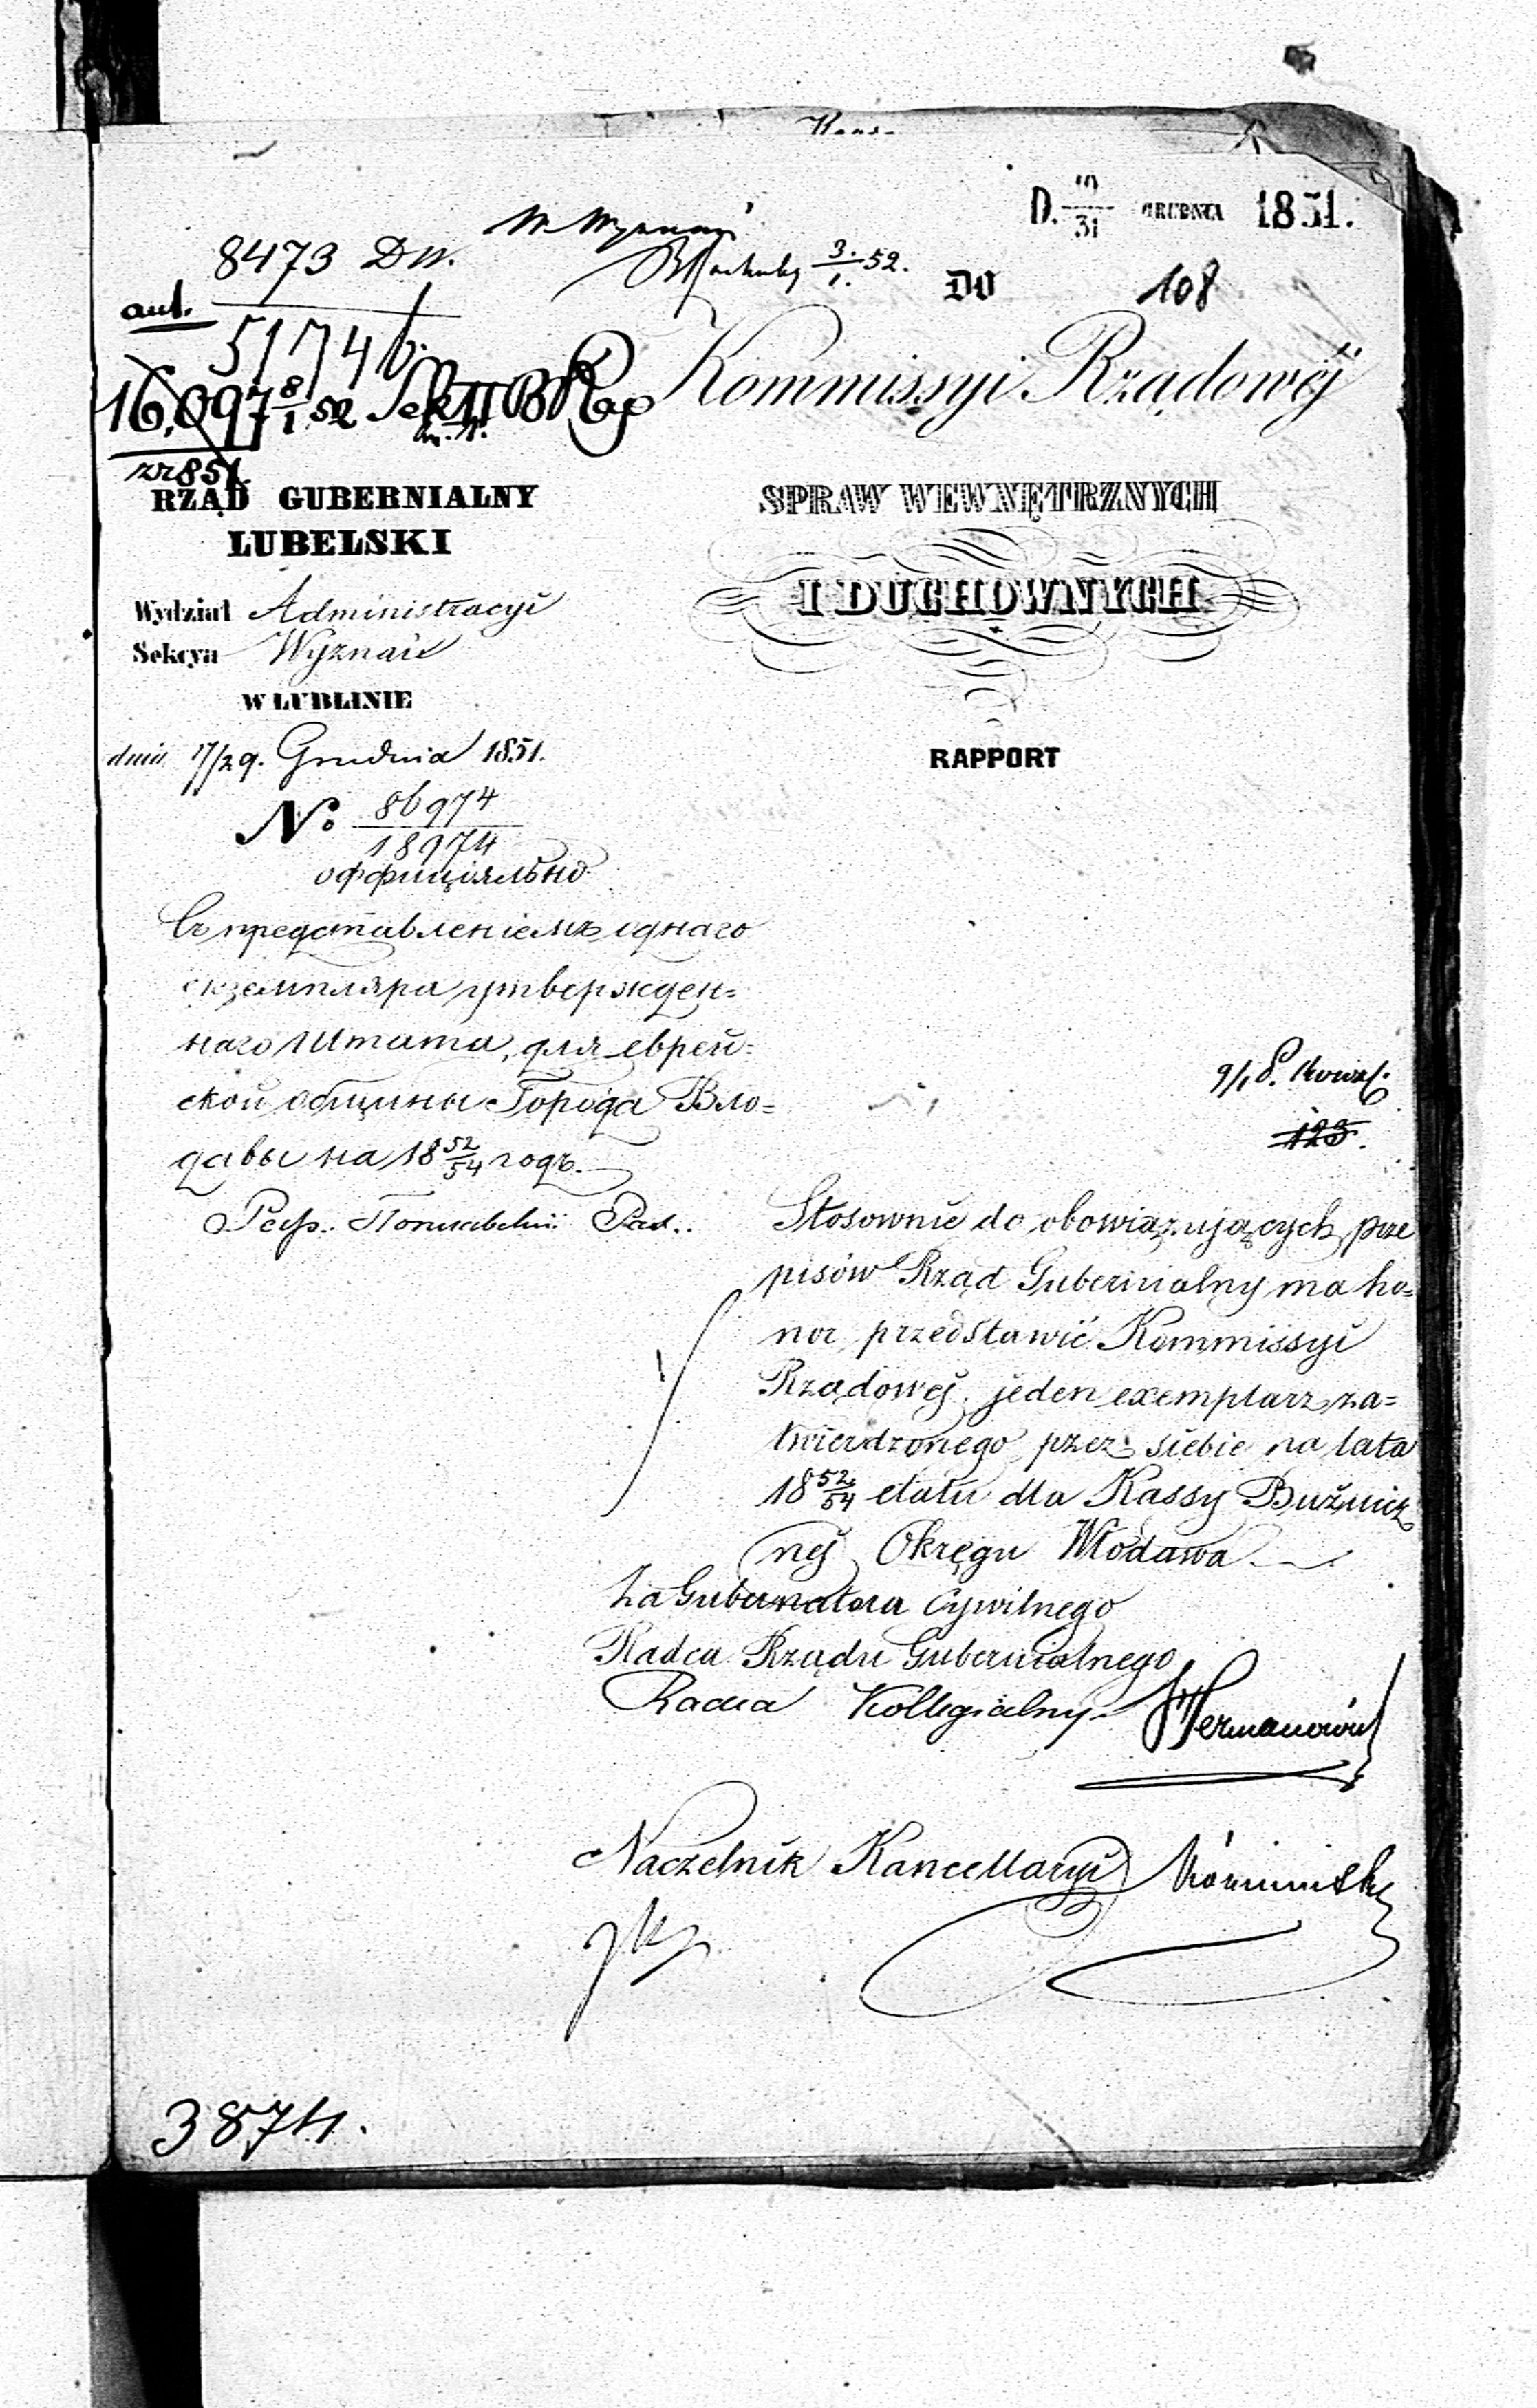 D. 19/31 GRUDNIA 1851.
8473 Dw.
3/1. 52.
DO
108
ant.
5174
Kommissyi Rządowéj
16,097 8/1 52 Sek II
zr 851.
RZĄD GUBERNIALNY
LUBELSKI
SPRAW WEWNĘTRZNYCH
I DUCHOWNYCH
Wydział Administracyi
Sekcya Wyznań
W LUBLINIE
RAPPORT
dnia 17/29. Grudnia 1851.
No 86974/18974
оффиціяльно
Съ представленіемъ еднаго
екземпляра утвержден=
наго Штата, для еврей=
ской общины Города Вло=
давы на 18 52/54 годъ.
9/1
123.
Stosownie do obowiązujących prze
pisów Rząd Gubernialny ma ho=
nor przedstawić Kommissyi
Rządowej jeden exemplarz za=
twierdzonego przez siebie na lata
18 52/54 etatu dla Kassy Bużnicz
nej Okręgu Włodawa
Za Gubernatora Cywilnego
Radca Rządu Gubernialnego
Radca Kollegialny
Naczelnik Kancellaryi
3874.